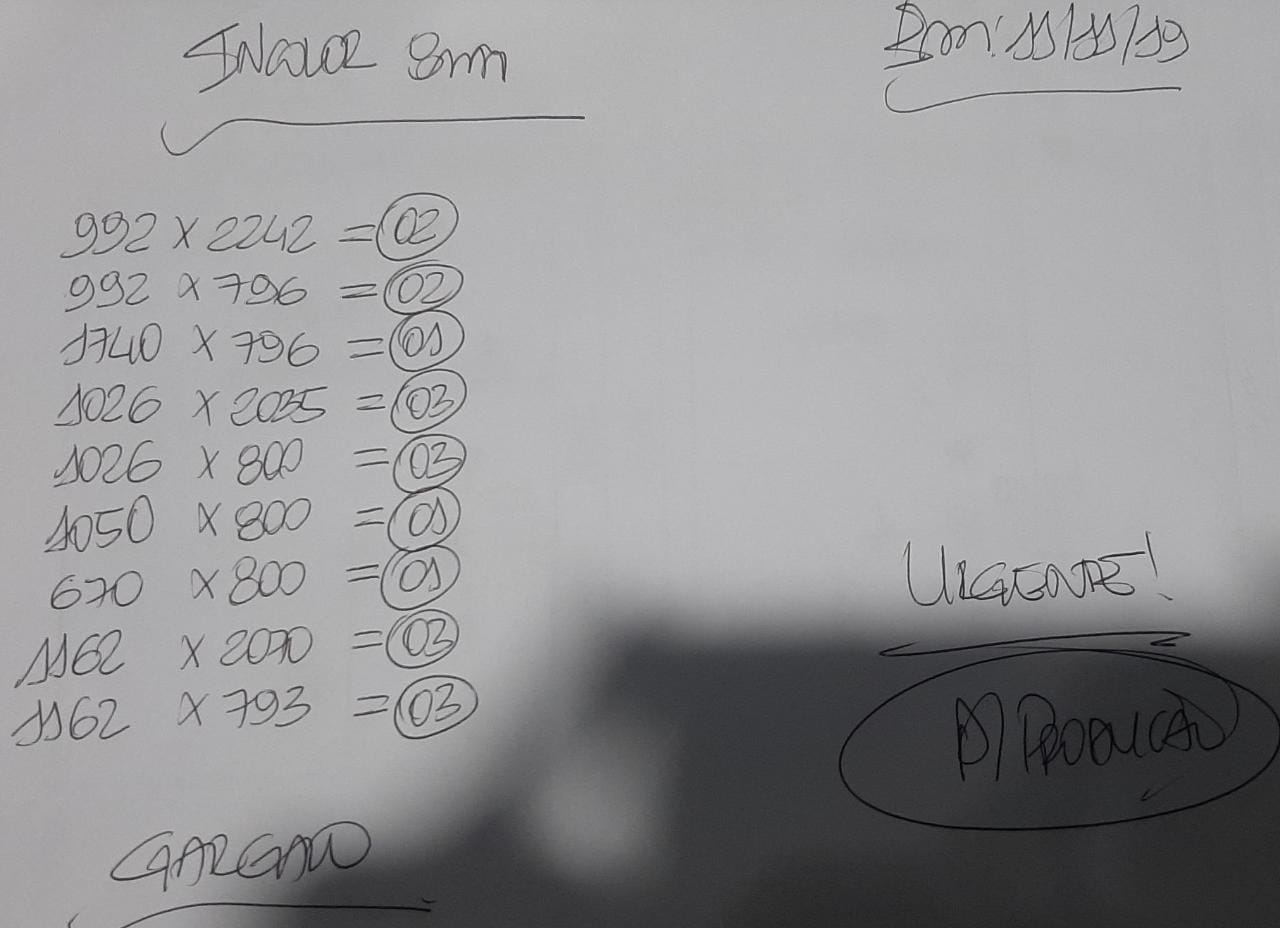 INCOLOR 8mm
Em: 11/11/19
992 x 2242 = 02
992 x 796 = 02
1740 x 796 = 01
1026 x 2035 = 03
1026 x 800 = 03
1050 x 800 = 01
670 x 800 = 01
1162 x 2070 = 03
1162 x 793 = 03
URGENTE!
P/ PRODUÇÃO